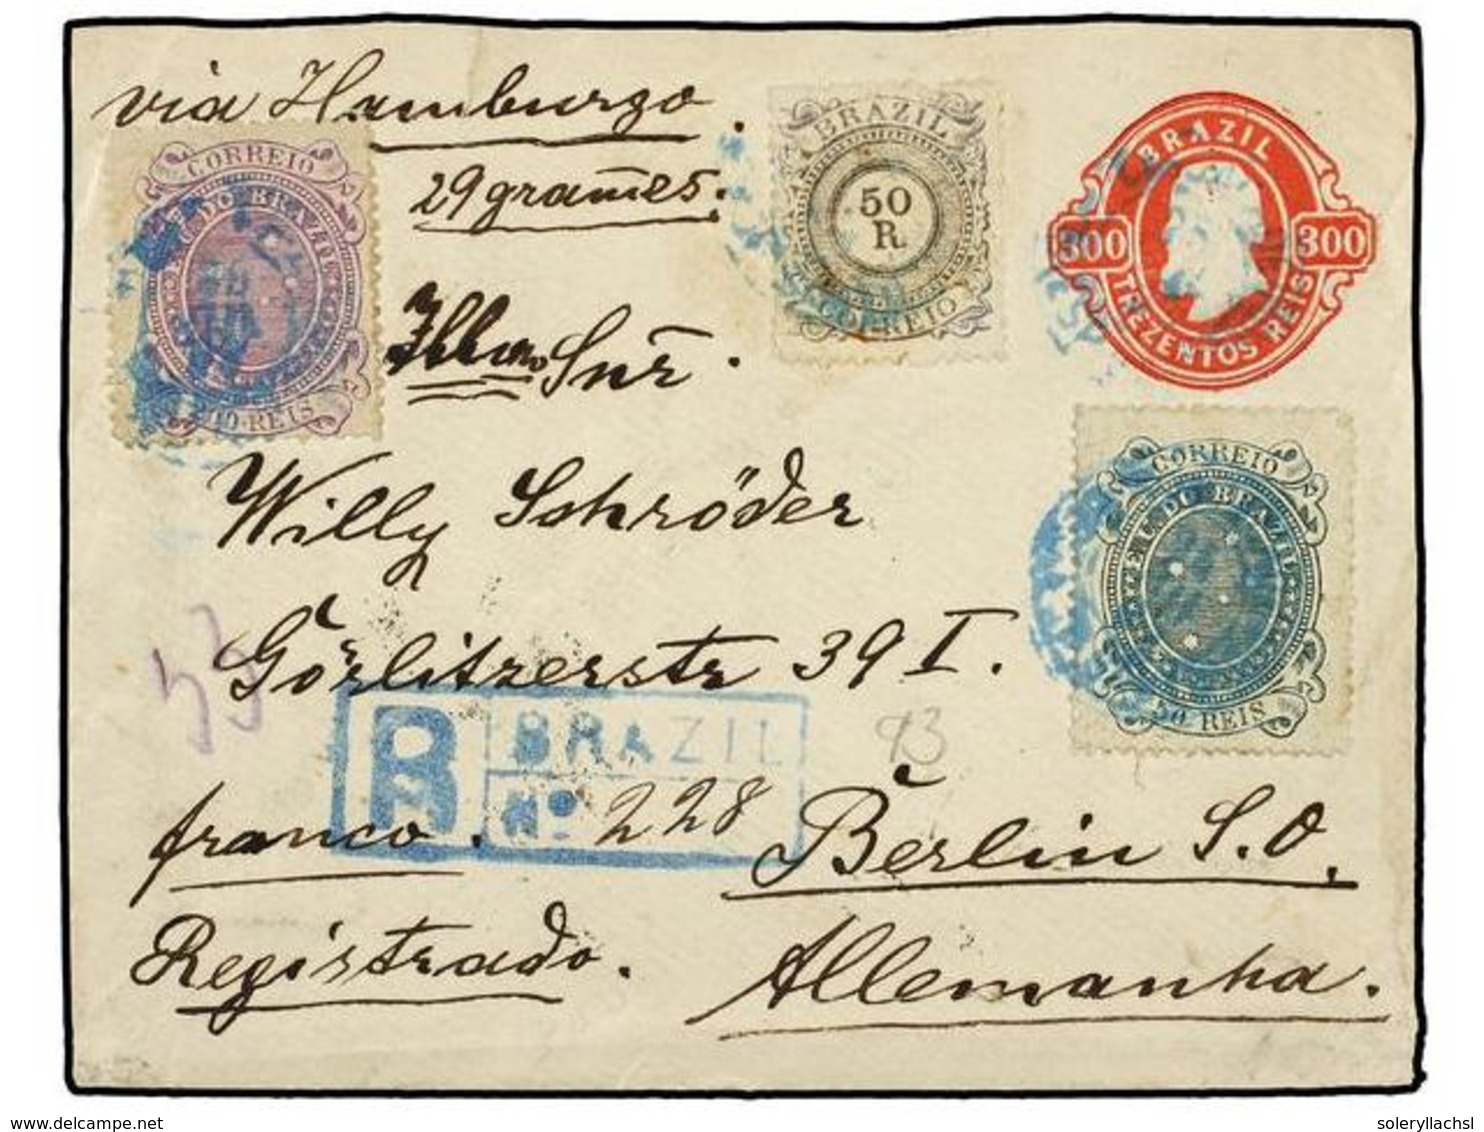 via Hamburgo.
29 grames.
CORREIO
E. U. DO BRAZIL
REIS
BRAZIL
50
R
CORREIO
BRAZIL
300 300
TREZENTOS REIS
Snr.
CORREIO
E. U. DO BRAZIL
50 REIS
Willy Schröder
Görlitzerstr 39 I.
53
R BRAZIL
Nº 228
93
franco.
Berlin S.O.
Registrado.
Allemanha.
www.delcampe.net
soleryllachsl